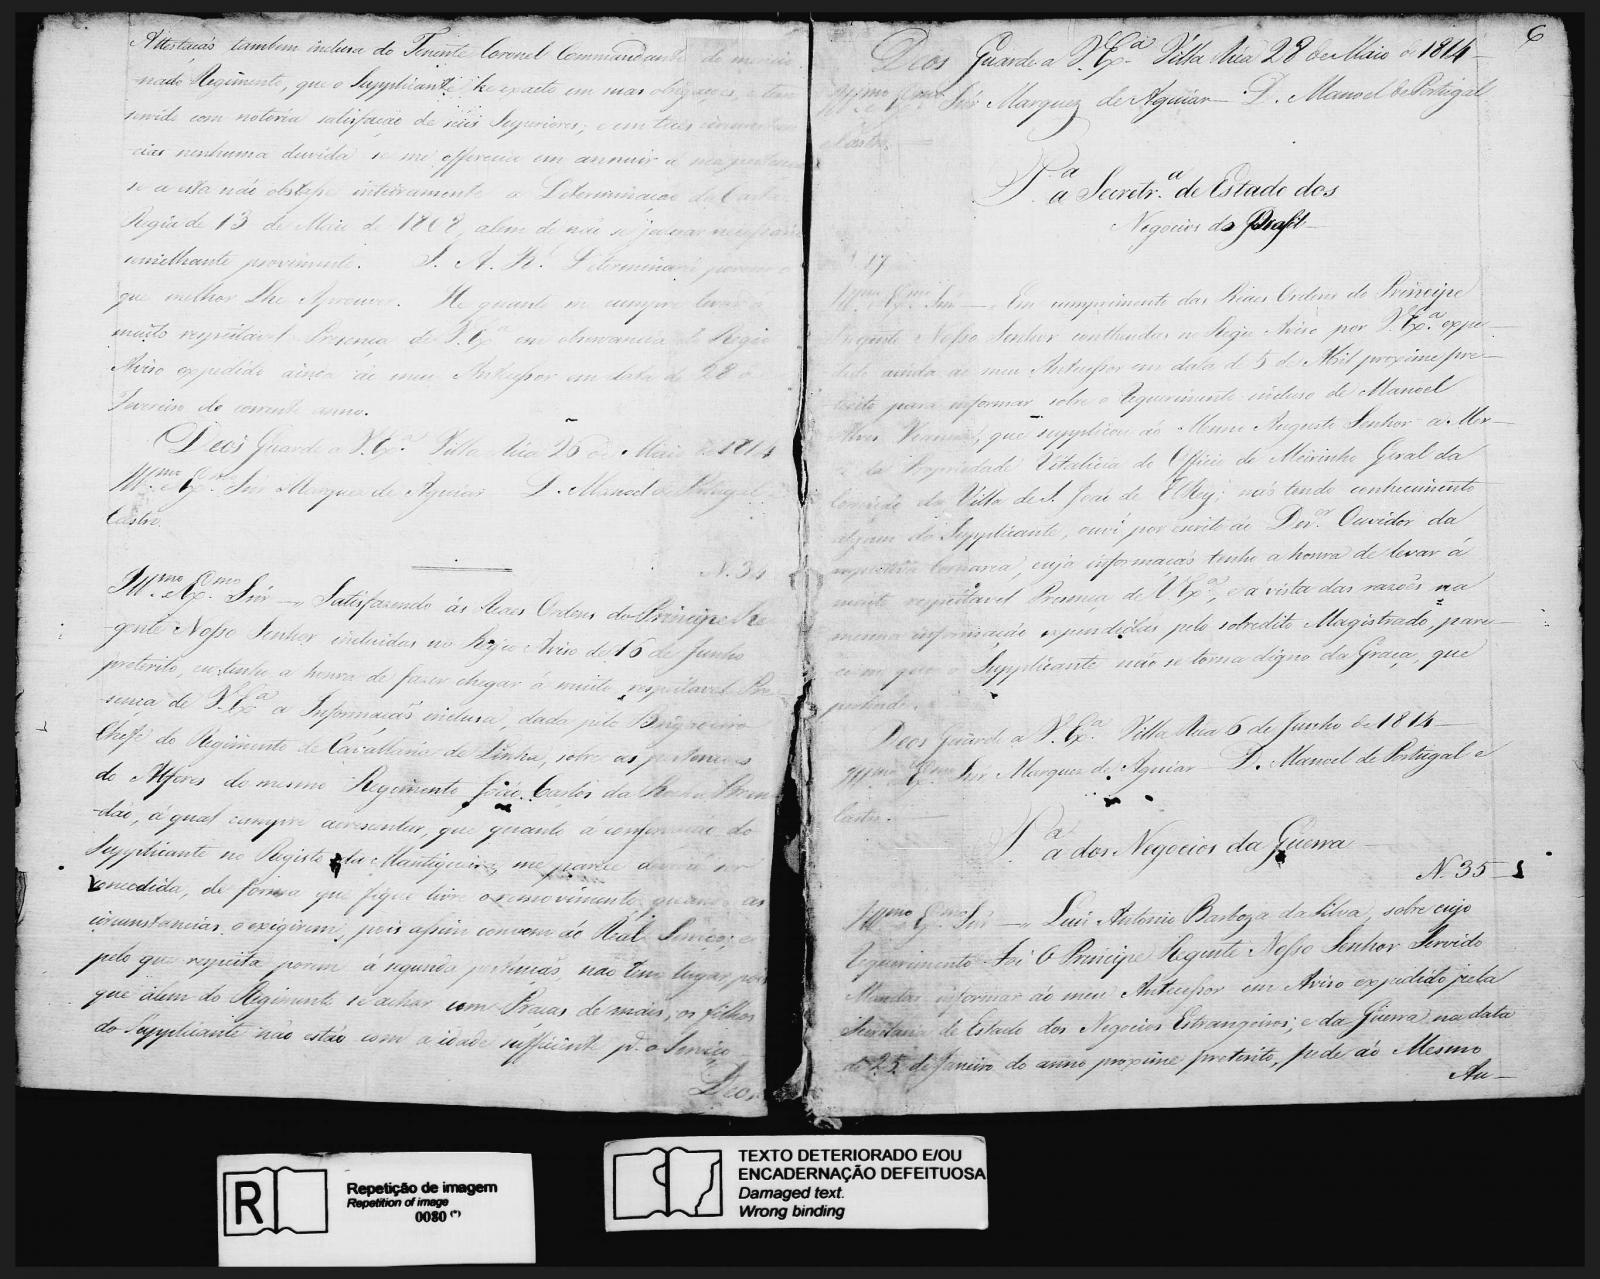 Attestacaõ tambem inclusa do Tenente Coronel Commandante do mencio-
nado Regimento, que o Supplicante he exacto em suas obrigaçoes, e tem
servido com notoria satisfacaõ de seus Superiores; e em taes circunstan
cias nenhuma duvida se me offerecia em annuir a sua pertencaõ
se a esta naõ obstasse inteiramente a Determinacaõ da Carta
Regia de 13 de Maio de 1808, alem de naõ se julgar necessario
semelhante provimento. S. A. R. Determinará porem o
que melhor Lhe Aprouver. He quanto me cumpre levar a
muito respeitavel Presença de V. Exa em observancia do Regio
Aviso expedido ainda ao meu Antecessor em data de 28 de
Fevereiro do corrente anno.
Deos Guarde a V. Exa. Villa Rica 26 de Maio de 1814
Illmo. e Exmo. Snr Marquez de Aguiar D. Manoel de Portugal
Castro.
N. 34
Illmo. e Exmo. Snr — Satisfazendo ás Reaes Ordens do Principe Re
gente Nosso Senhor incluidas no Regio Aviso de 16 de Junho
preterito, eu tenho a honra de fazer chegar á muito respeitavel Pre-
sença de V. Exa a Informacaõ inclusa, dada pelo Brigadeiro
Chefe do Regimento de Cavallaria de Linha, sobre as pertencoes
do Alferes do mesmo Regimento Joaõ Carlos da
daõ, á qual cumpre acresentar, que quanto á do
Supplicante no Registo da Mantiqueira, me parece deverá ser
concedida, de forma que fique livre o removimento quando as
circunstancias o exigirem, pois assim convem ao Real Serviço; e
pelo que respeita porem á segunda pertencaõ, naõ tem lugar por
que alem do Regimento se achar com Pracas de mais, os filhos
do Supplicante naõ estaõ com a idade sufficiente pa. o Serviço
Deos
6
Deos Guarde a V. Exa. Villa Rica 28 de Maio de 1814 —
Illmo. e Exmo. Snr Marquez de Aguiar — D. Manoel de Portugal
e Castro. —
Pa. a Secretra. de Estado dos
Negocios do Brasil —
Illmo. e Exmo. Snr — Em cumprimento das Reaes Ordens do Principe
Regente Nosso Senhor contheudas no Regio Aviso por V. Exa. expe-
dido ainda ao meu Antecessor em data de 5 de Abril proximo pre-
terito para informar sobre o Requerimento incluso de Manoel
Alves, que supplicou ao Mesmo Augusto Senhor a Mer-
ce da Propriedade Vitalicia do Officio de Meirinho Geral da
Comarca da Villa de S. Joaõ de ElRey; naõ tendo conhecimento
algum do Supplicante, ouvi por escrito ao Dor. Ouvidor da
respectiva Comarca, cuja informacaõ tenho a honra de levar á
muito respeitavel Presença de V. Exa, e á vista das razões na
mesma informaçaõ expendidas pelo sobredito Magistrado, pare-
ce-me que o Supplicante naõ se torna digno da Graca, que
pertende.
Deos Guarde a V. Exa. Villa Rica 6 de Junho de 1814 —
Illmo. e Exmo. Snr Marquez de Aguiar — D. Manoel de Portugal e
Castro. —
Pa. a dos Negocios da Guerra
N. 35
Illmo. e Exmo. Snr — Luis Antonio Barboza da Silva, sobre cujo
Requerimento foi O Principe Regente Nosso Senhor Servido
Mandar informar ao meu Antecessor em Aviso expedido pela
Secretaria de Estado dos Negocios Estrangeiros, e da Guerra na data
de 25 de Janeiro do anno proximo preterito, pede ao Mesmo
Au-
R
Repetição de imagem
Repetition of image
0080 (*)
TEXTO DETERIORADO E/OU
ENCADERNAÇÃO DEFEITUOSA
Damaged text.
Wrong binding